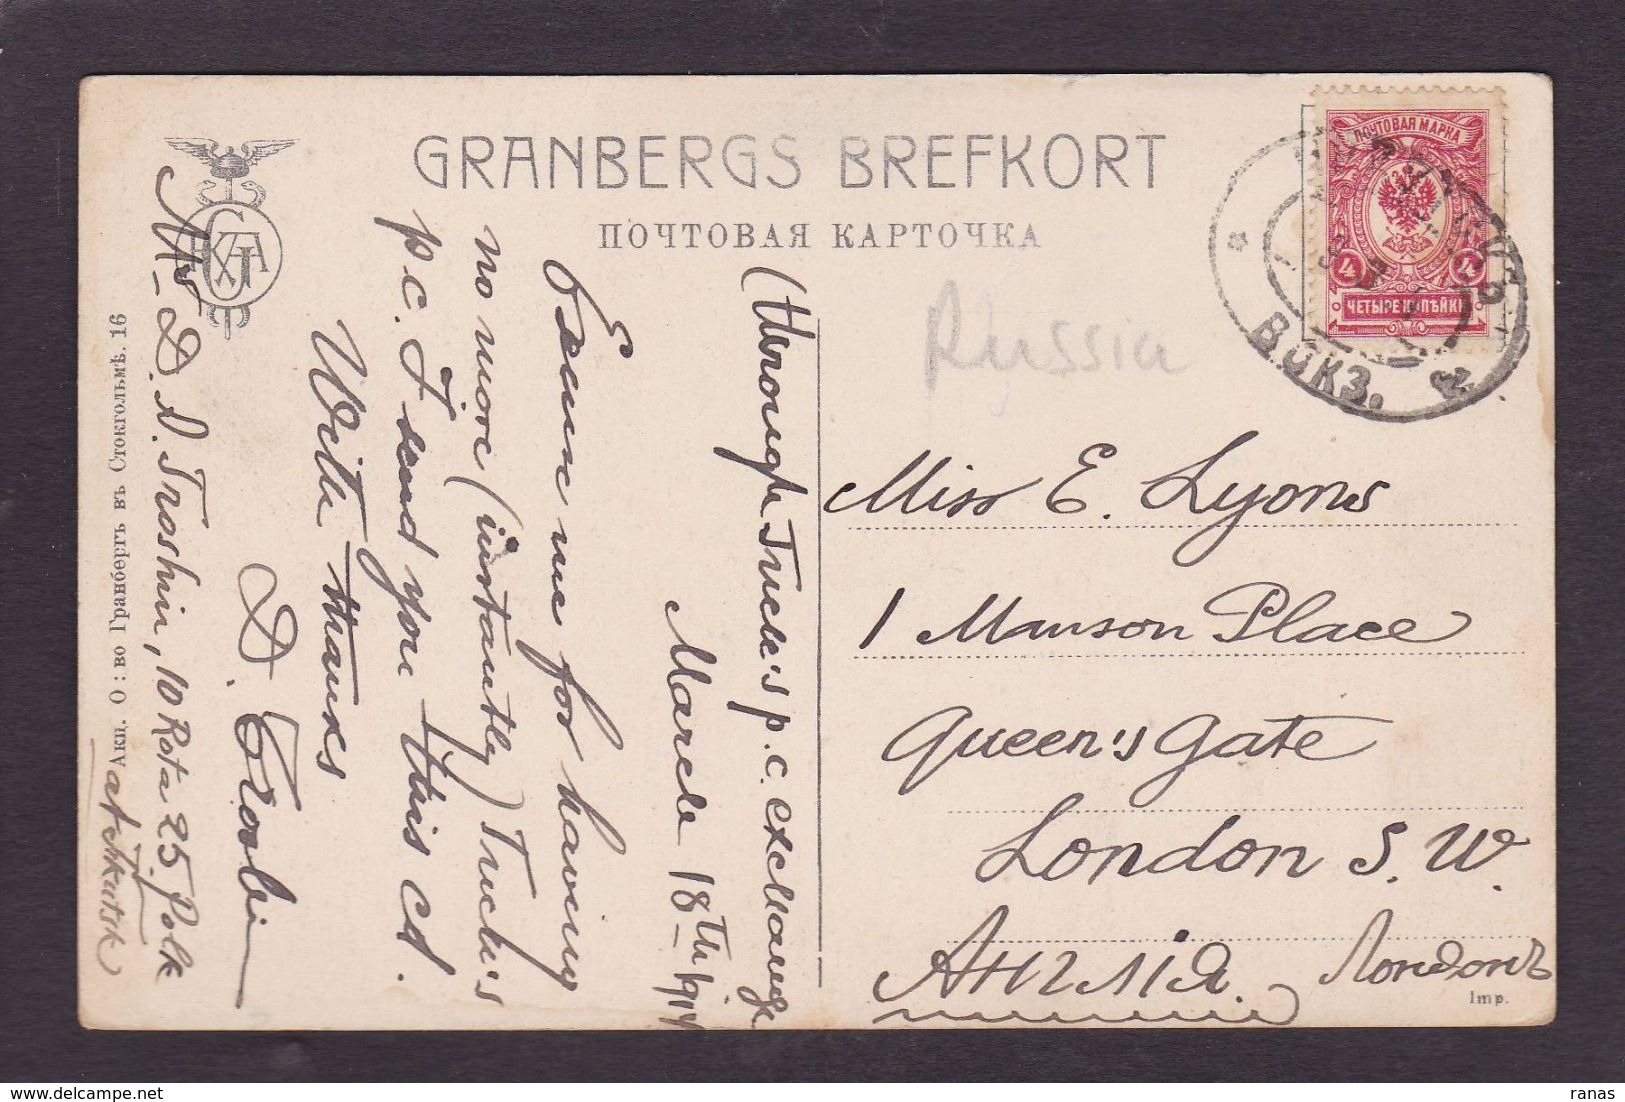 GRANBERGS BREFKORT
ПОЧТОВАЯ КАРТОЧКА
ПОЧТОВАЯ МАРКА
4 4
ЧЕТЫРЕ КОПѢЙКИ
ВОКЗ.
Russia
(through Tuck's p.c. exchange
March 18th/914
Excuse me for having
no more (instantly) Tuck's
p.c. I send you this cd.
With thanks
D.
Mrs D. D. Troshin, 10 Rota 25 Polk
at Irkutsk
Акц. О:во Гранбергъ въ Стокгольмѣ. 16
Miss E. Lyons
1 Manson Place
Queen's Gate
London S. W.
Англія. Лондонъ
Imp.
ranas